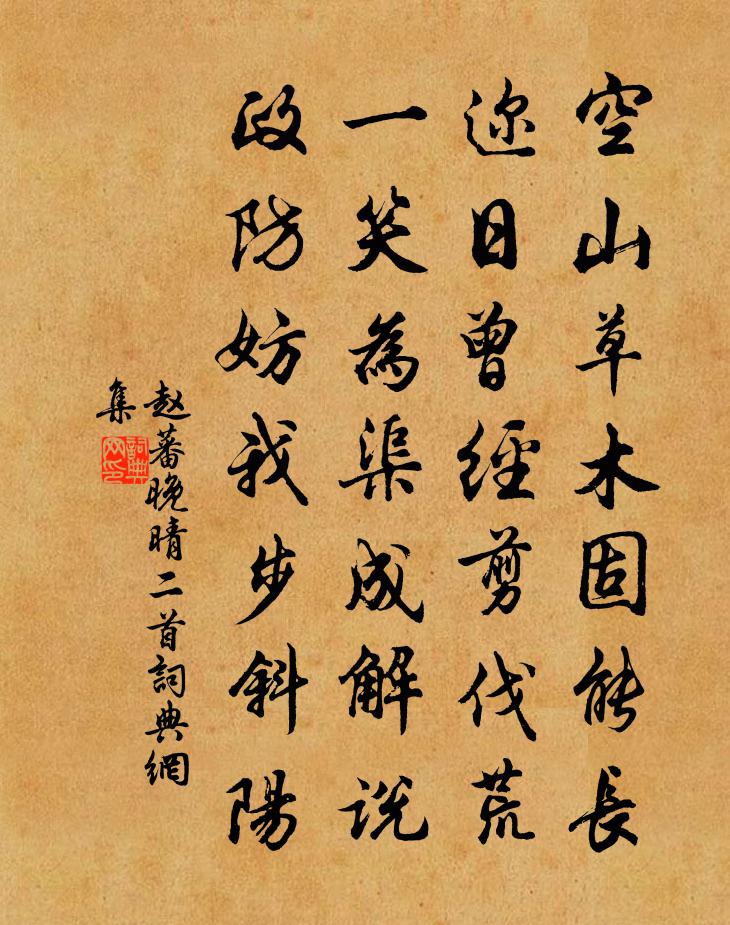 空山草木固能長
迩日曾經剪伐荒
一笑為渠成解説
政防妨我步斜陽
赵蕃晚晴二首詞典網
集
詞典网印